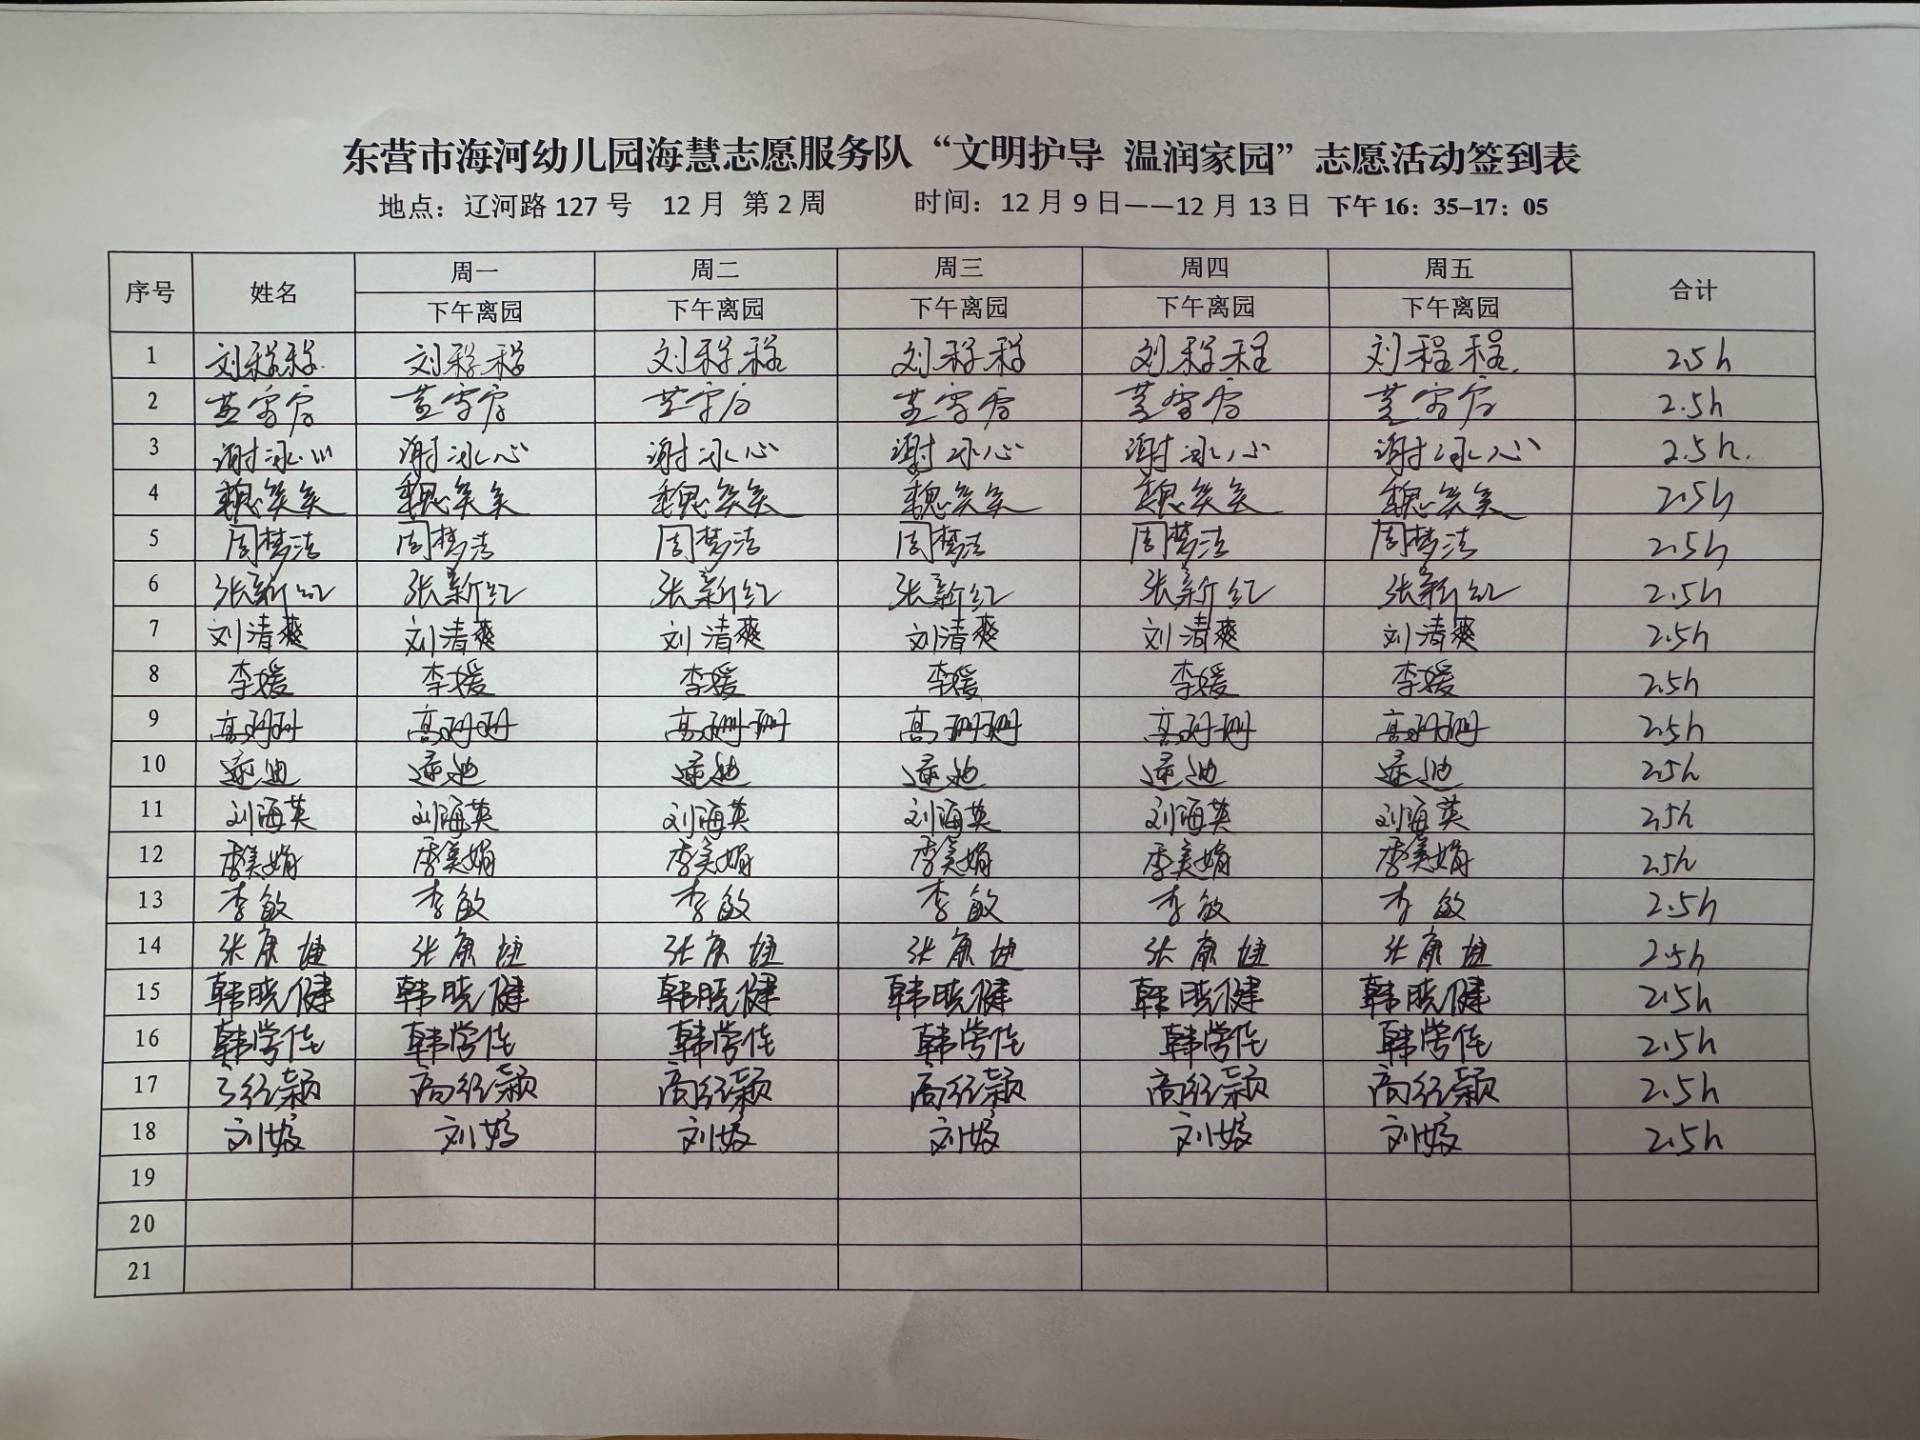 东营市海河幼儿园海慧志愿服务队“文明护导 温润家园”志愿活动签到表
地点：辽河路 127 号 12 月 第 2 周 时间：12 月 9 日——12 月 13 日 下午 16：35-17：05
序号 姓名 周一 周二 周三 周四 周五 合计
下午离园 下午离园 下午离园 下午离园 下午离园
1 刘程程 刘程程 刘程程 刘程程 刘程程 刘程程 2.5h
2 2.5h
3 谢冰心 谢冰心 谢冰心 谢冰心 谢冰心 谢冰心 2.5h.
4 魏笑笑 魏笑笑 魏笑笑 魏笑笑 魏笑笑 魏笑笑 2.5h
5 周梦洁 周梦洁 周梦洁 周梦洁 周梦洁 周梦洁 2.5h
6 张新红 张新红 张新红 张新红 张新红 张新红 2.5h
7 刘清爽 刘清爽 刘清爽 刘清爽 刘清爽 刘清爽 2.5h
8 李媛 李媛 李媛 李媛 李媛 李媛 2.5h
9 高珊珊 高珊珊 高珊珊 高珊珊 高珊珊 高珊珊 2.5h
10 2.5h
11 刘海英 刘海英 刘海英 刘海英 刘海英 刘海英 2.5h
12 季美娟 季美娟 季美娟 季美娟 季美娟 季美娟 2.5h
13 李敏 李敏 李敏 李敏 李敏 李敏 2.5h
14 张康捷 张康捷 张康捷 张康捷 张康捷 张康捷 2.5h
15 韩晓健 韩晓健 韩晓健 韩晓健 韩晓健 韩晓健 2.5h
16 韩学佳 韩学佳 韩学佳 韩学佳 韩学佳 韩学佳 2.5h
17 高经颖 高经颖 高经颖 高经颖 高经颖 高经颖 2.5h
18 刘 刘 刘 刘 刘 刘 2.5h
19
20
21